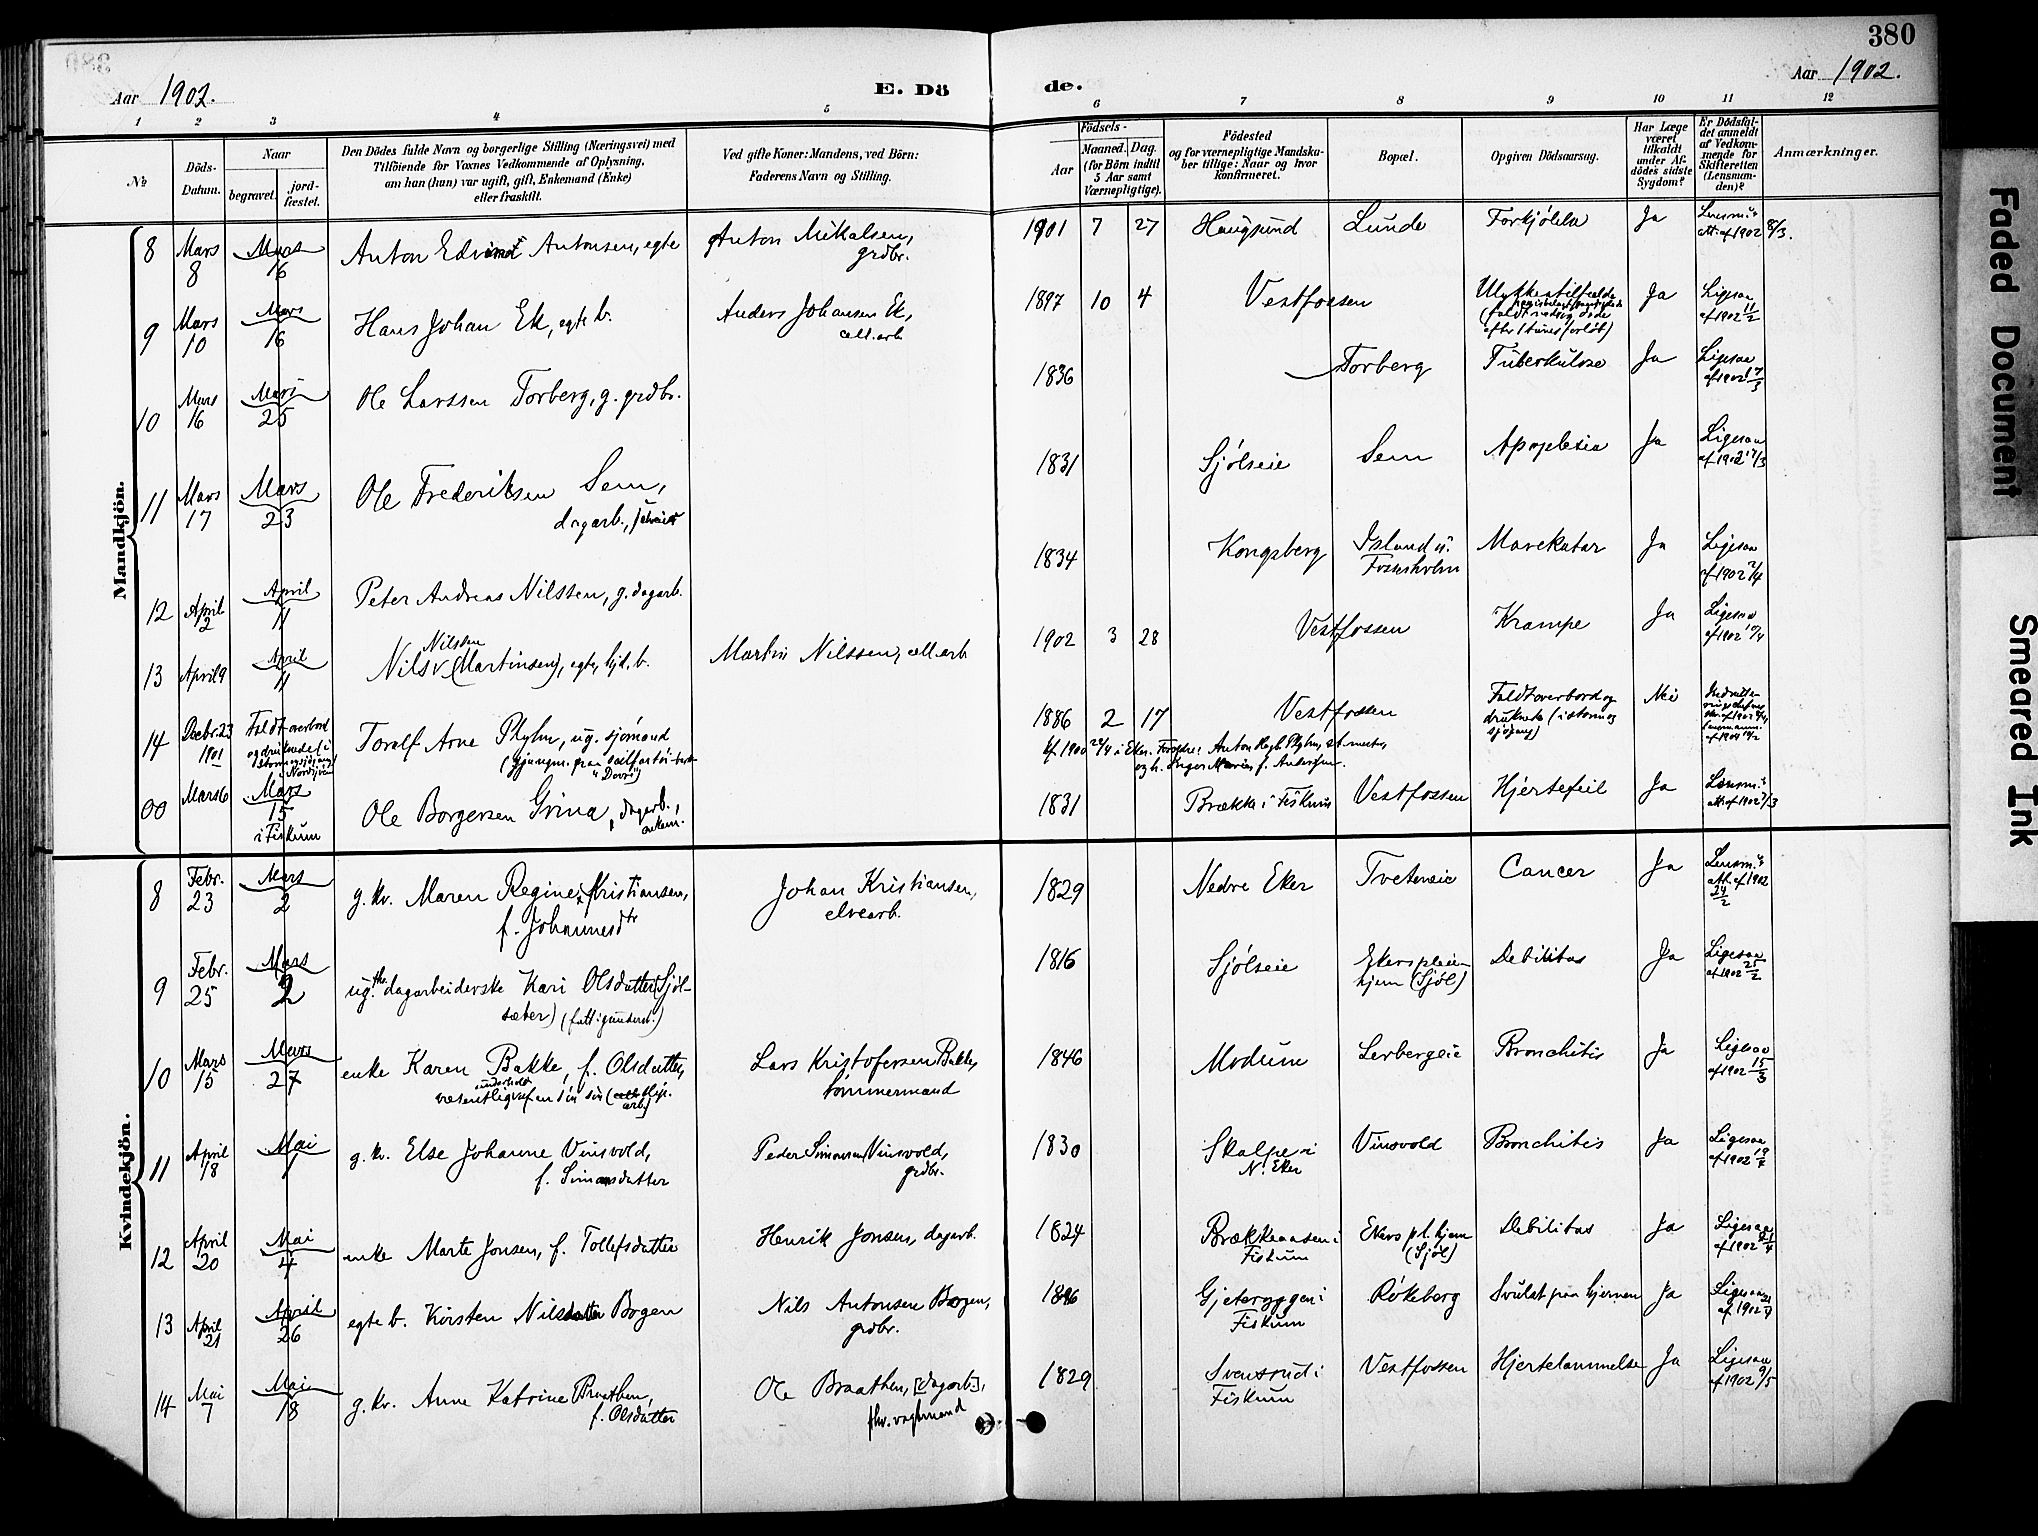 380
Aar 1902.
E. Dö
de.
Aar 1902.
1 2 3 4 5 6 7 8 9 10 11 12
№
Döds-
Datum.
Naar
begravet.
jord-
fæstet.
Den Dödes fulde Navn og borgerlige Stilling (Næringsvei) med
Tilföiende for Voxnes Vedkommende af Oplysning,
om han (hun) var ugift, gift, Enkemand (Enke)
eller fraskilt.
Ved gifte Koner: Mandens, ved Börn:
Faderens Navn og Stilling.
Födsels-
Aar
Maaned. Dag.
(for Börn indtil
5 Aar samt
Værnepligtige).
Födested
og for værnepligtige Mandska-
ber tillige: Naar og hvor
konfirmeret.
Bopæl.
Opgiven Dödsaarsag.
Har Læge
været
tilkaldt
under Af-
dödes sidste
Sygdom?
Er Dödsfal-
det anmeldt
af Vedkom-
mende for
Skifteretten
(Lensman-
den)?
Anmærkninger.
Mandkjön.
8 Mars 8 Mars 16 Anton Edvind Antonsen, egte Anton Mikalsen, grdbr. 1901 7 27 Haugsund Lunde Forkjölelse Ja Lensm.s att. af 1902 8/3.
9 Mars 10 Mars 16 Hans Johan Ek, egte b. Anders Johansen Ek, cell.arb. 1897 10 4 Vestfossen Ulykkestilfælde (faldt ned og döde efter 1 times forløb) Ja Ligesaa af 1902 11/2
10 Mars 16 Mars 25 Ole Larssen Torberg, g. grdbr. 1836 Torberg Tuberkulose Ja Ligesaa af 1902 17/3
11 Mars 17 Mars 23 Ole Frederiksen Sem, dagarb., 1831 Sjölseie Sem Apoplexia Ja Ligesaa af 1902 17/3
12 April 2 April 11 Peter Andreas Nilssen, g. dagarb. 1834 Kongsberg Island u. Fossesholm Mavekatar Ja Ligesaa af 1902 2/4
13 April 9 April 11 Nils Nilssen (Martinsen), egte, hjd. b. Martin Nilssen, cell.arb. 1902 3 28 Vestfossen Krampe Ja Ligesaa af 1902 10/4
14 Decbr. 23 1901 Faldt overbord og druknede i Nordsjöen Toralf Arne Plyhn, ug. sjömand 1886 2 17 Vestfossen Faldt overbord og druknede (i storm og sjögang) Nei
kf. 1900 22/4 i Eker. Forældre: Anton Plyhn,
00 Mars 6 Mars 15 i Fiskum Ole Borgersen Grina, dagarb., enkem. 1831 Brække i Fiskum Vestfossen Hjertefeil Ja Lensm.s att. af 1902 7/3
Kvindekjön.
8 Febr. 23 Mars 2 g. kv. Maren Regine Kristiansen, f. Johannesdtr Johan Kristiansen, elvearb. 1829 Nedre Eker Tveteneie Cancer Ja Lensm.s att. af 1902 24/2
9 Febr. 25 Mars 2 ug. fhv. dagarbeiderske Kari Olsdatter (Sjöl- sæter) (fattigunderst.) 1816 Sjölseie Ekers pleie- hjem (Sjöl) Debilitas Ja Ligesaa af 1902 25/2
10 Mars 15 Mars 27 enke Karen Bakke, f. Olsdatter, væsentligst underholdt af en sön Lars Kristofersen Bakke, tömmermand 1846 Modum Lerbergeie Bronchitis Ja Ligesaa af 1902 15/3
11 April 18 Mai 1 g. kv. Else Johanne Vinsvold, f. Simonsdatter Peder Simonsen Vinsvold, grdbr. 1830 Skalpe i N. Eker Vinsvold Bronchitis Ja Ligesaa af 1902 19/4
12 April 20 Mai 4 enke Marte Jonsen, f. Tollefsdatter Henrik Jonsen, dagarb. 1824 Brækkeaasen i Fiskum Ekers pl. hjem (Sjöl) Debilitas Ja Ligesaa af 1902 21/4
13 April 21 April 26 egte b. Kirsten Nilsdatter Bogen Nils Antonsen Bogen, grdbr. 1896 Gjeteryggen i Fiskum Rökeberg Svulst paa hjernen Ja Ligesaa af 1902 21/4
14 Mai 7 Mai 18 g. kv. Anne Katrine Braathen, f. Olsdatter Ole Braathen, [dagarb.], fhv. vagtmand 1829 Svensrud i Fiskum Vestfossen Hjertelammelse Ja Ligesaa af 1902 9/5
Faded Document
Smeared Ink